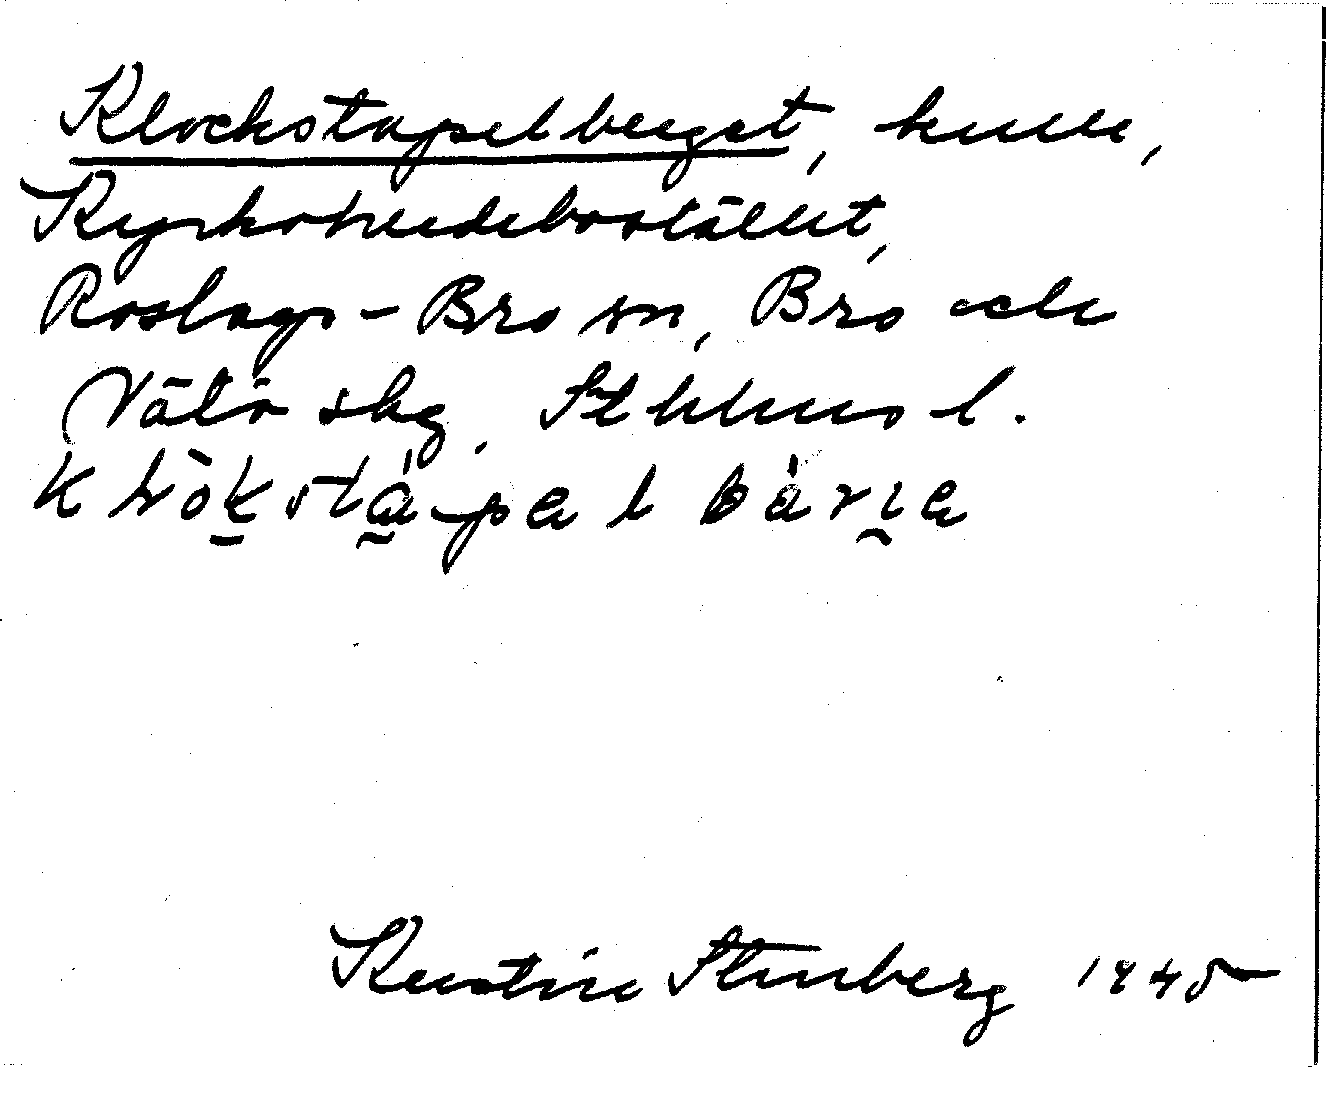 Klockstapelberget, kulle,
Kyrkoherdebostället,
Roslags-Bro sn, Bro och
Vätö skg. Sthlms l.
Kerstin Stenberg 1945